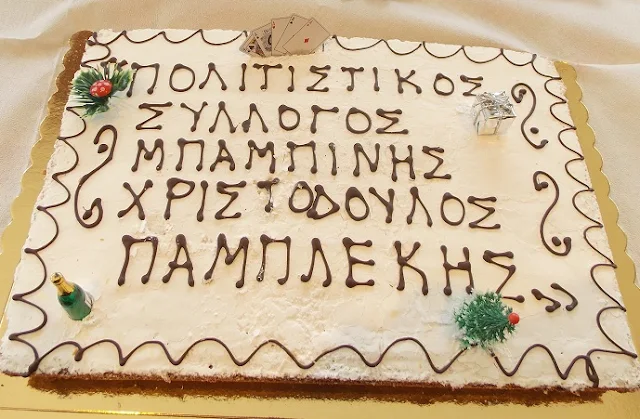 "ΠΟΛΙΤΙΣΤΙΚΟΣ
ΣΥΛΛΟΓΟΣ
ΜΠΑΜΠΙΝΗΣ
ΧΡΙΣΤΟΔΟΥΛΟΣ
ΠΑΜΠΛΕΚΗΣ"